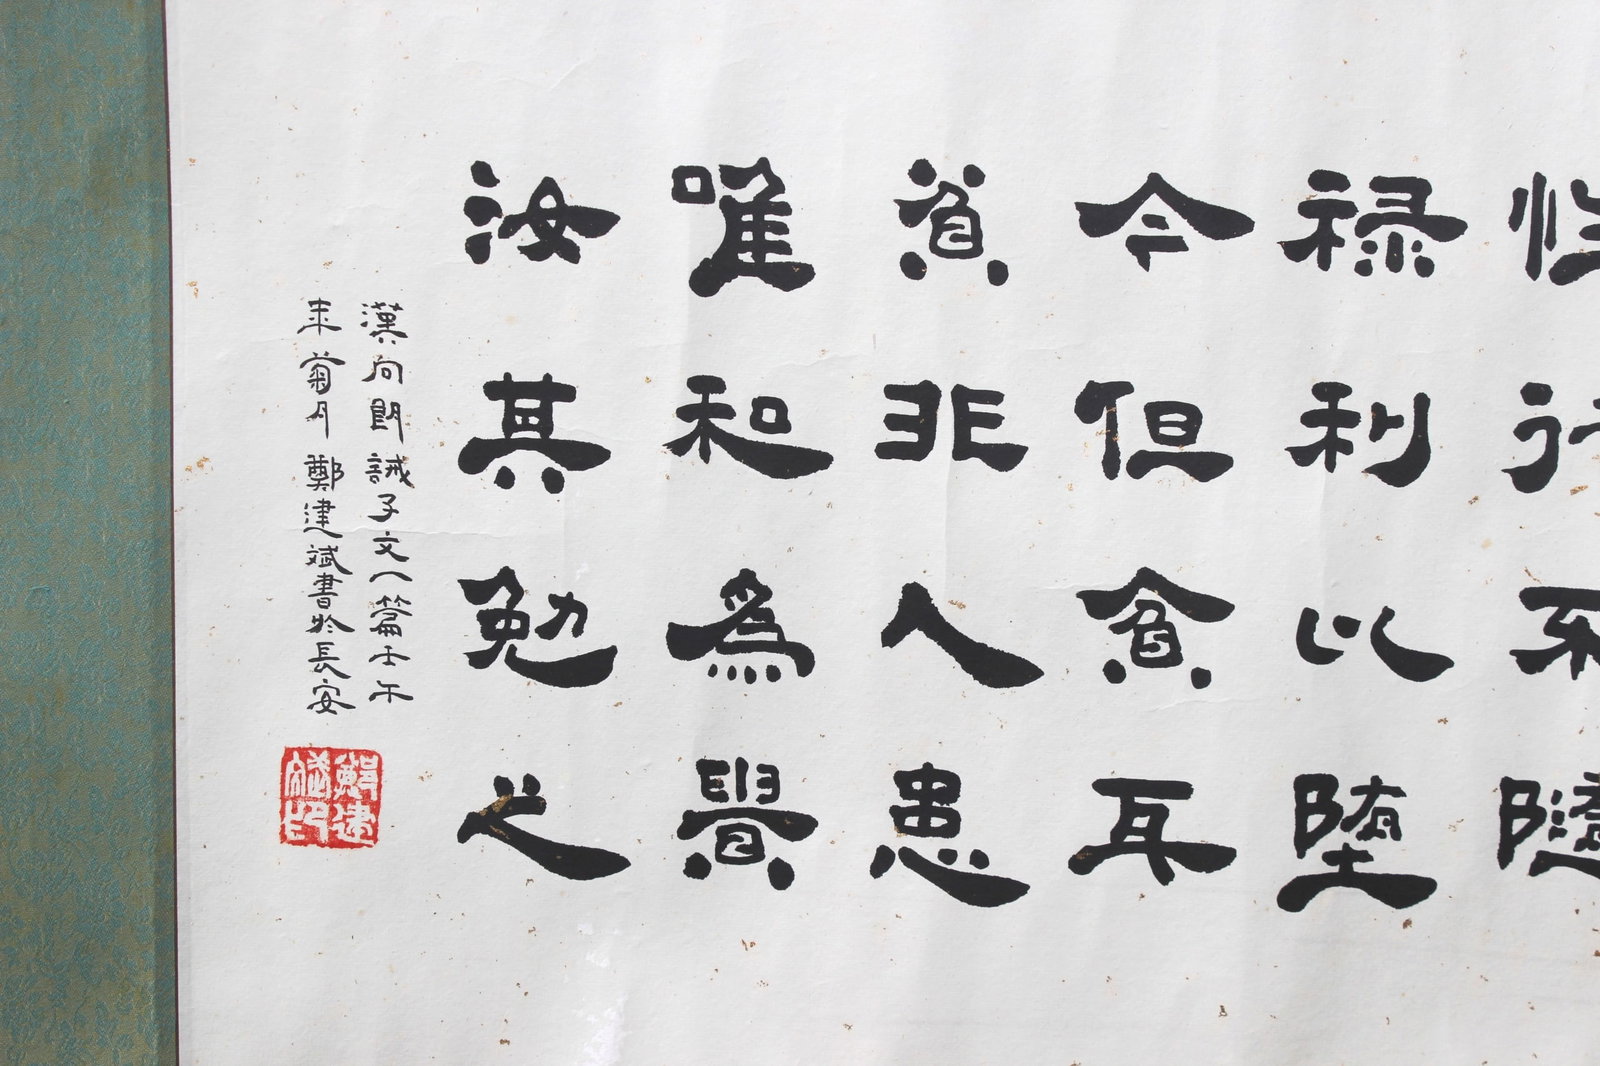 性行不隨
禄利以堕
今但貧耳
貧非人患
唯和為貴
汝其勉之
漢向朗誡子文一篇壬午
年菊月鄭建斌書於長安
鄭建斌印